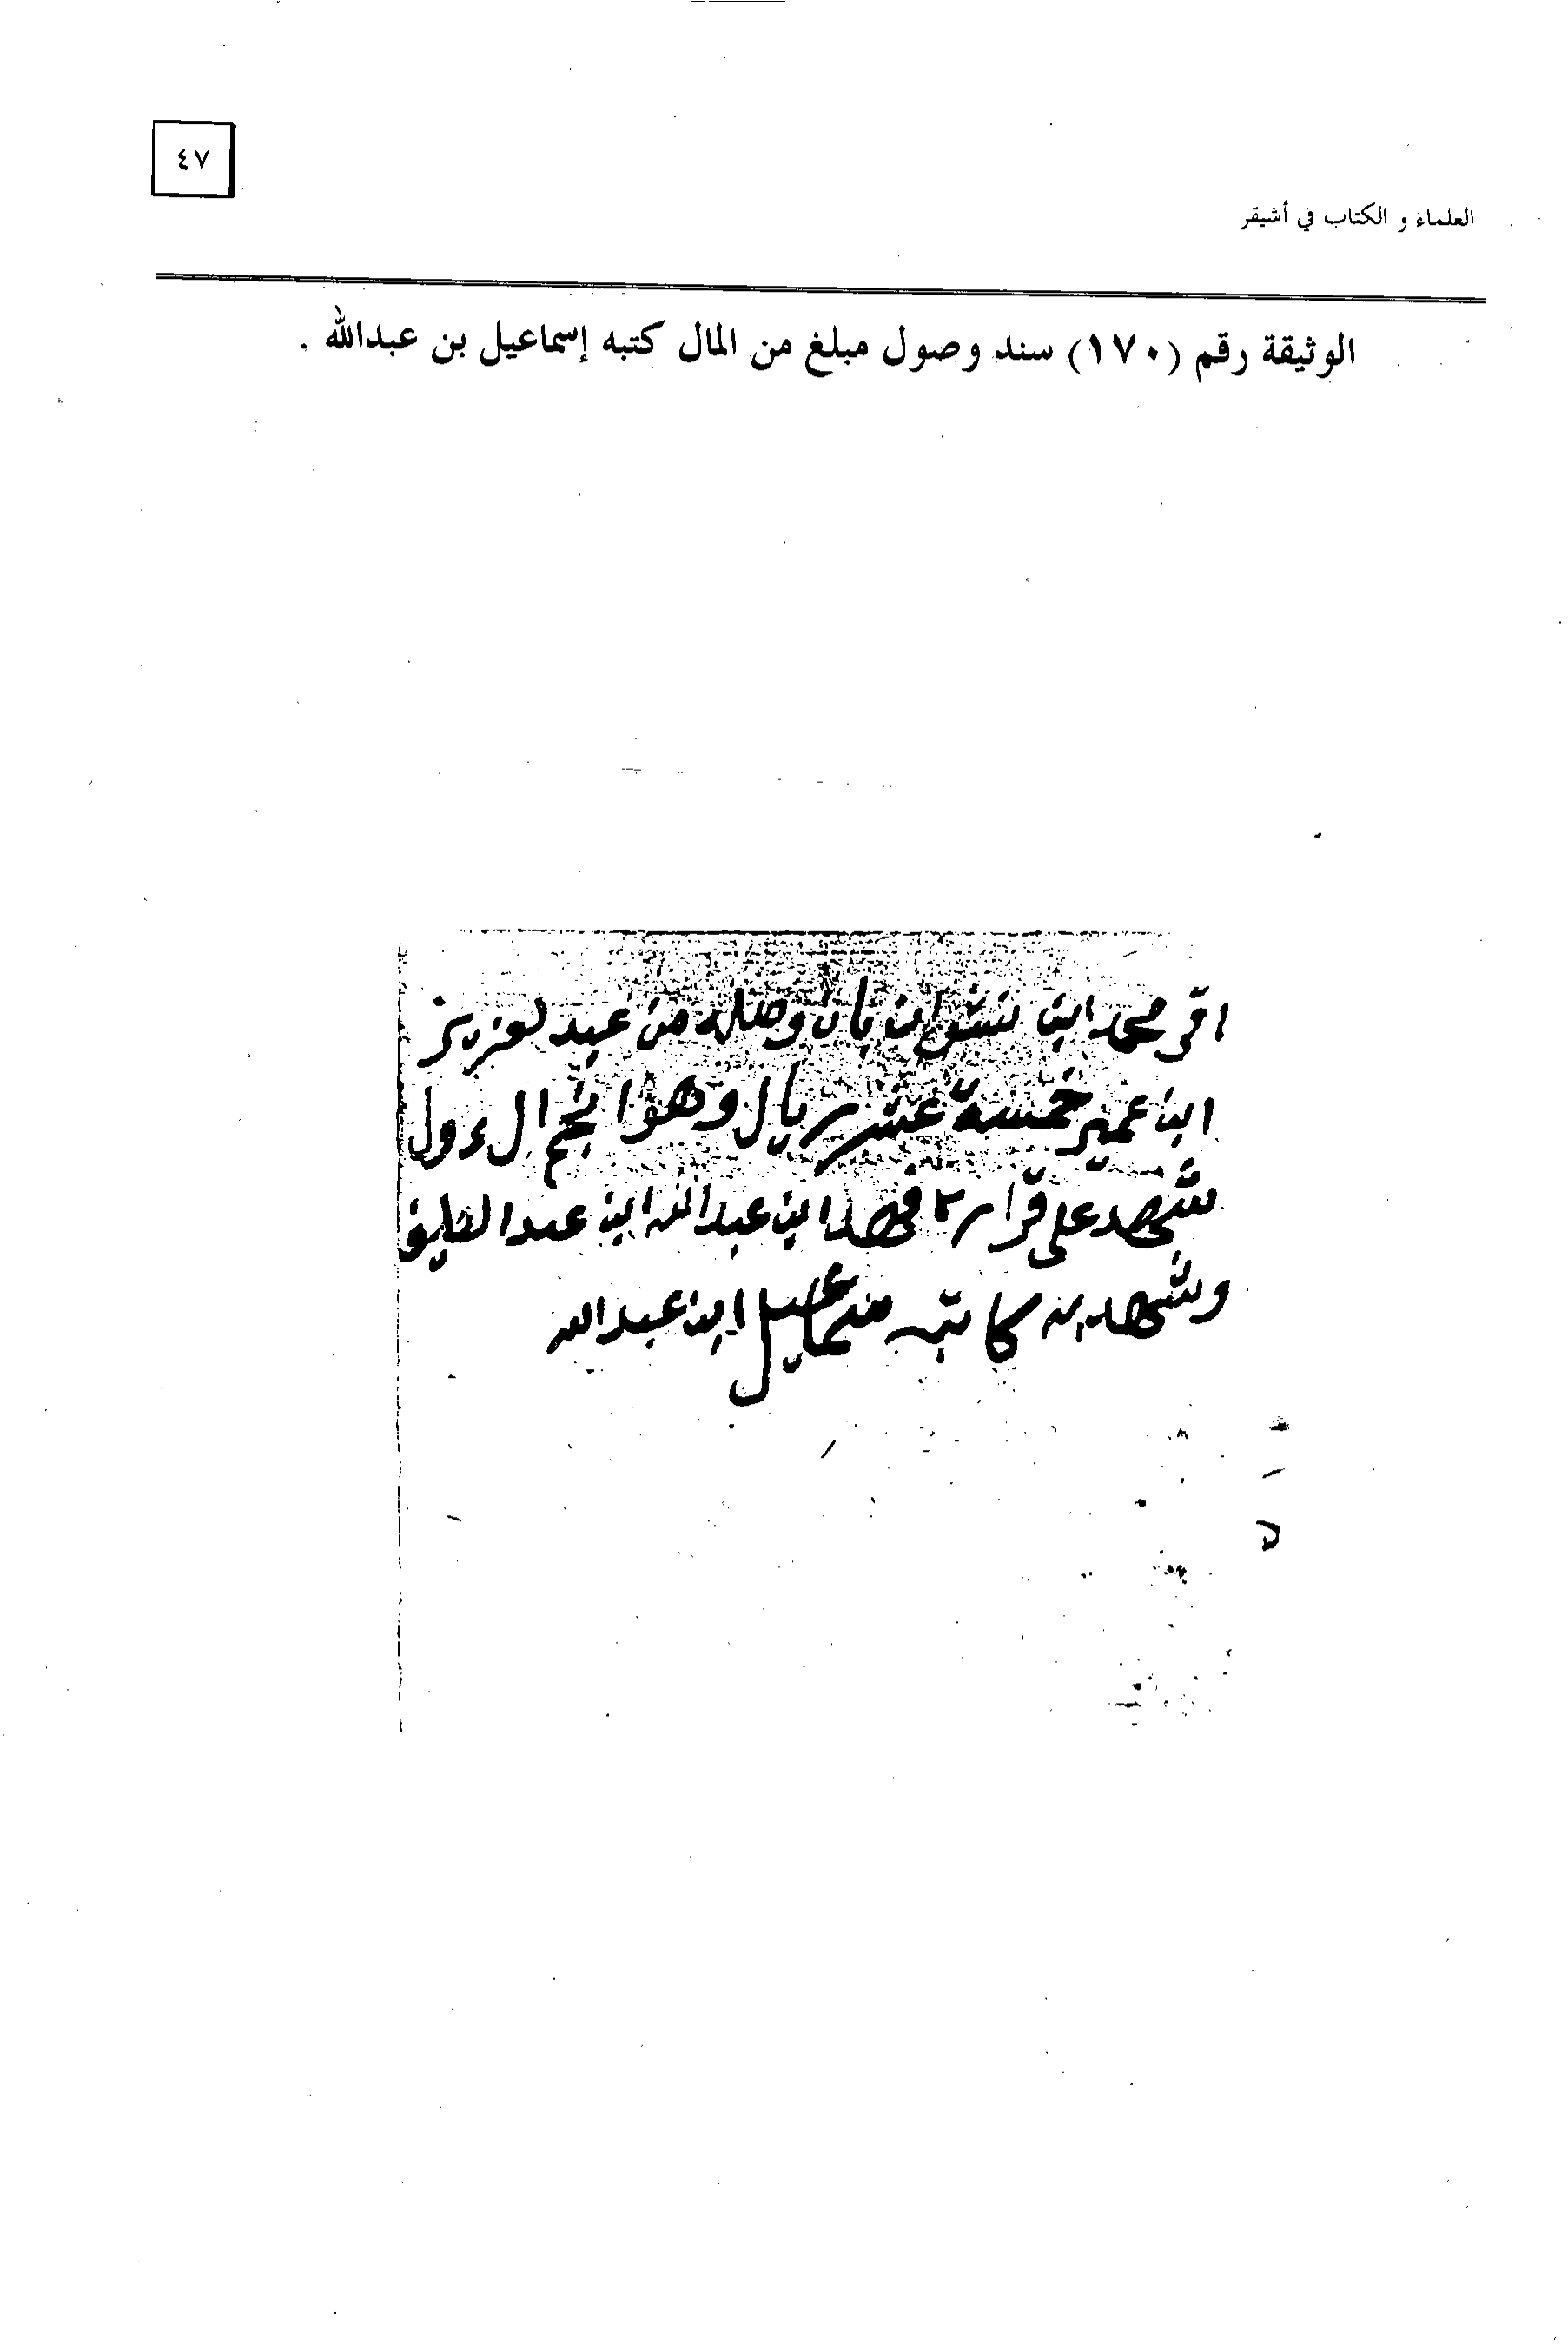 ٤٧
العلماء و الكتاب في أشيقر
الوثيقة رقم (١٧٠) سند وصول مبلغ من المال كتبه إسماعيل بن عبدالله .
اقر محمد ابن نشوان بان وصله من عبد لعزيز
ابن عمير خمسة عشر ريال وهو انجم ال ءول
شهد على قراره فهد ابن عبدالله ابن عبد الطيف
وشهد به كاتبه سماعيل ابن عبدالله